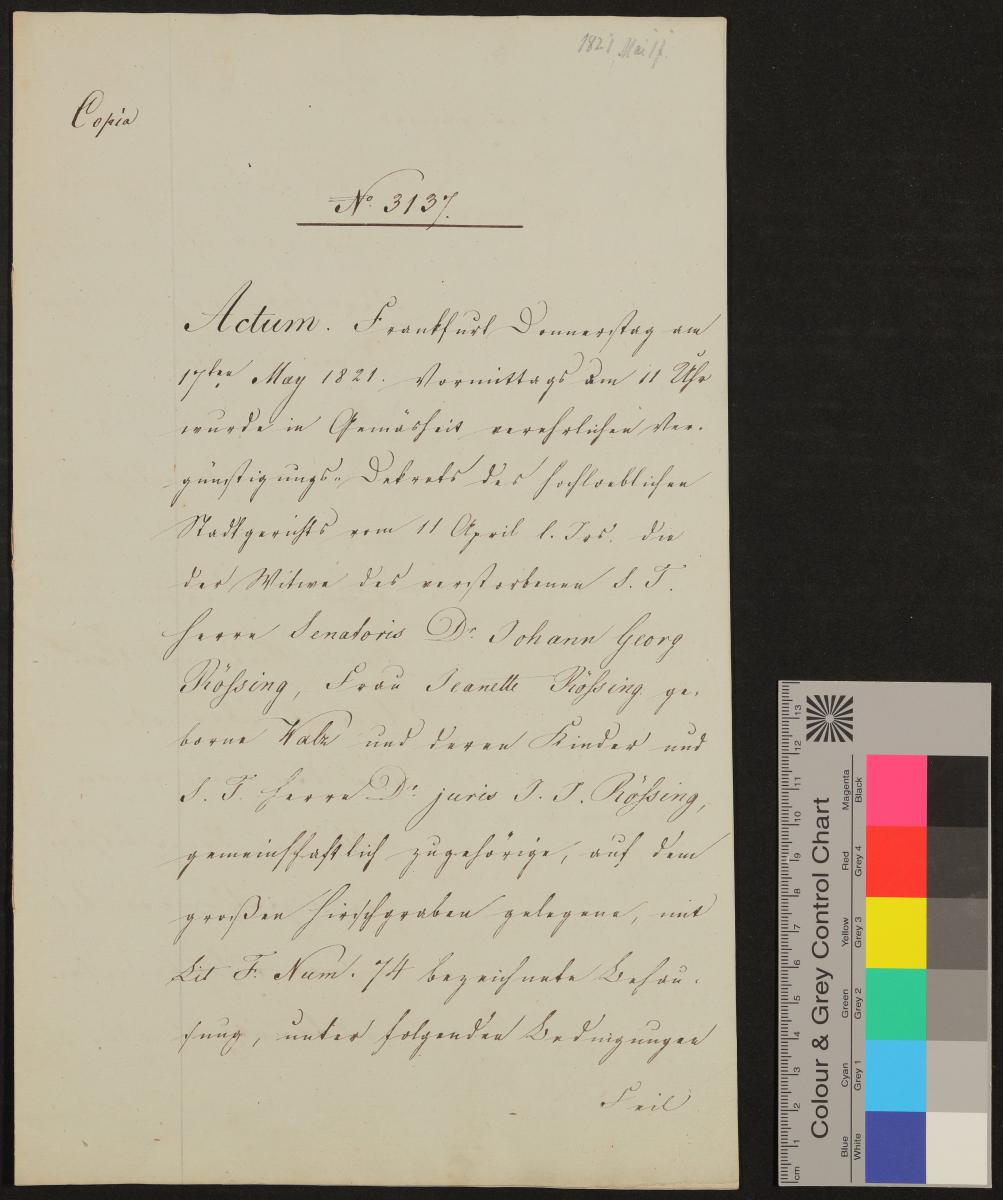 1821, Mai 17.
Copia
No. 3137.
Actum. Frankfurt Donnerstag am
17ten May 1821. Vormittags um 11 Uhr
wurde in Gemäsheit verehrlichen Ver-
günstigungs-Dekrets des hochloeblichen
Stadtgerichts vom 11 April l. Jrs. die
der Witwe des verstorbenen S. T.
Herrn Senatoris Dr. Johann Georg
Rössing, Frau Jeanette Rössing ge-
borne Walz und deren Kinder und
S. T. Herrn Dr. juris J. J. Rössing,
gemeinschaftlich zugehörige, auf dem
großen Hirschgraben gelegene, mit
Lit F. Num. 74 bezeichnete Behau-
sung, unter folgenden Bedingungen
Feil
Colour & Grey Control Chart
Blue Cyan Green Yellow Red Magenta
White Grey 1 Grey 2 Grey 3 Grey 4 Black
cm 1 2 3 4 5 6 7 8 9 10 11 12 13